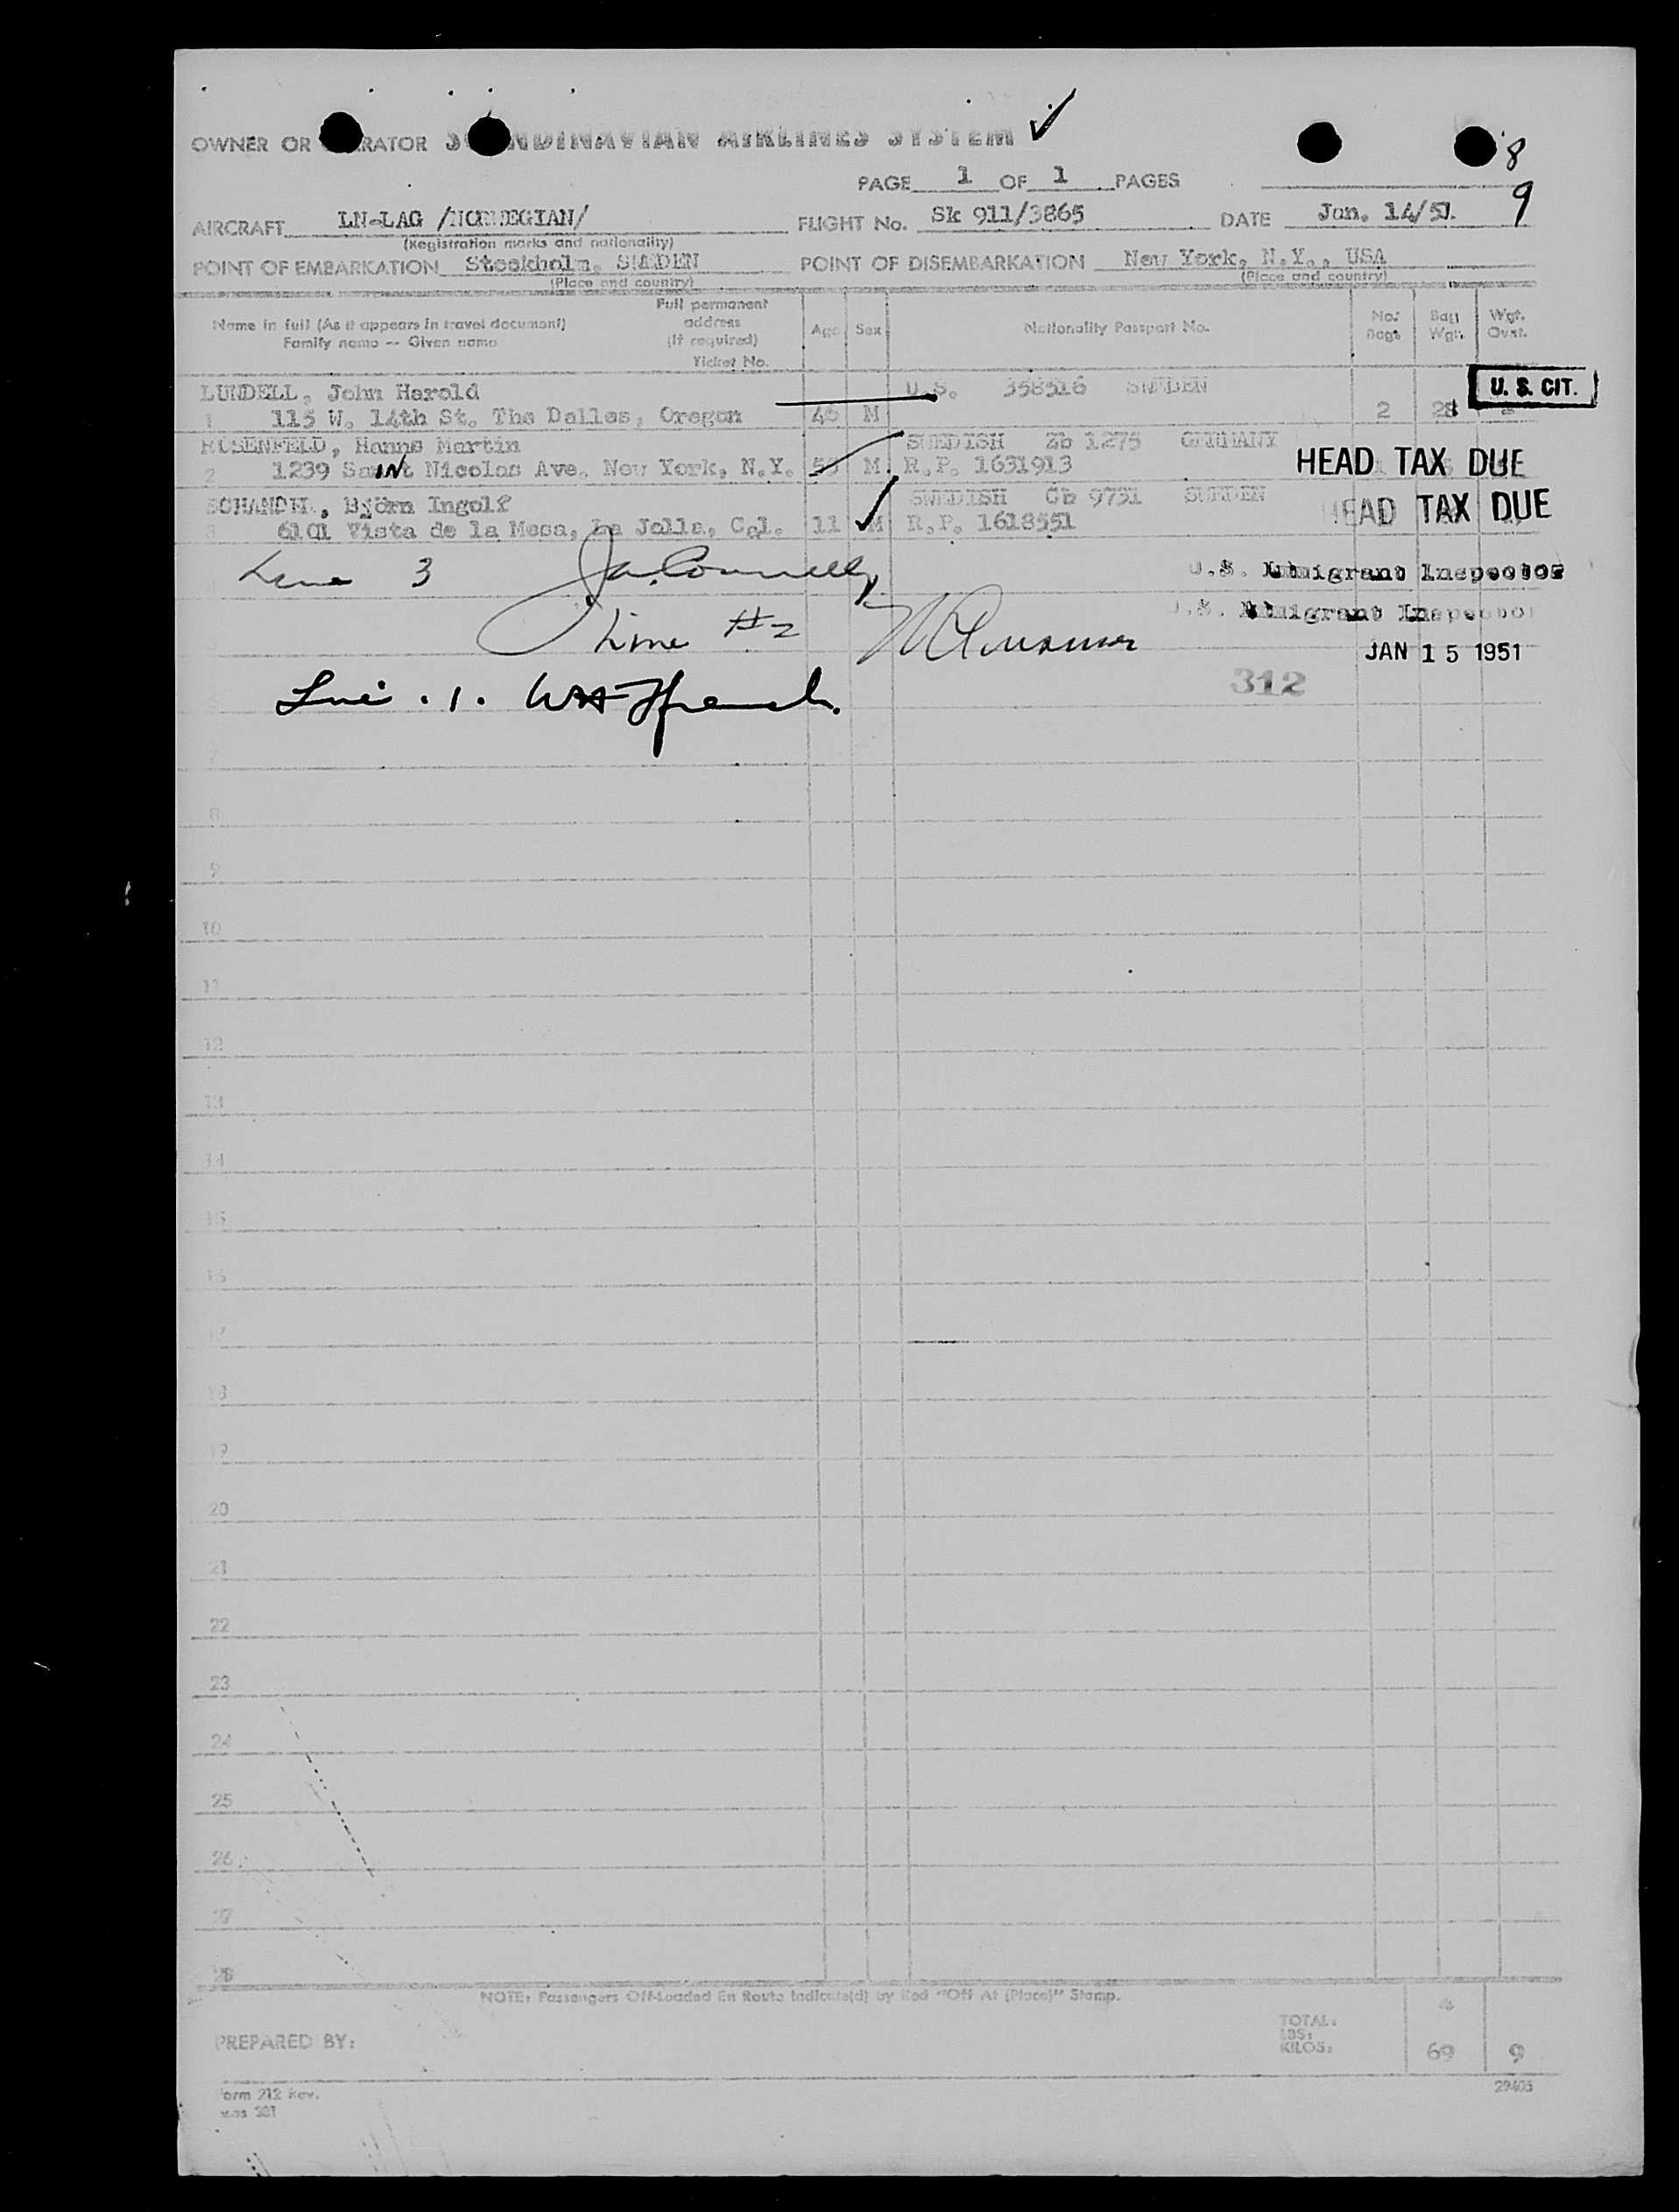 8
OWNER OR RATOR S NDINAVIAN AIRLINES SYSTEM ✓
PAGE 1 OF 1 PAGES
9
AIRCRAFT LN-LAG /NORWEGIAN/ FLIGHT No. Sk 911/3865 DATE Jan. 14/51.
(Registration marks and nationality)
POINT OF EMBARKATION Stockholm, SWEDEN POINT OF DISEMBARKATION New York, N.Y., USA
(Place and country) (Place and country)
Name in full (As it appears in travel document) Family name -- Given name Full permanent address (If required) Ticket No. Age Sex Nationality Passport No. No. Bags Bag Wgt. Wgt. Ovst.
LUNDELL, John Harold U.S. 358516 SWEDEN U. S. CIT.
1 115 W. 14th St. The Dalles, Oregon 46 M 2 28
ROSENFELD, Hanns Martin SWEDISH Zb 1275 GERMANY
2 1239 Saint Nicolas Ave. New York, N.Y. M R.P. 1631913 HEAD TAX DUE
, Björn Ingolf SWEDISH Cb 9751 SWEDEN
3 6101 Vista de la Mesa, La Jolla, Cal. 11 M R.P. 1618551 HEAD TAX DUE
Line 3 J.A. Connelly U.S. Immigrant Inspector
Line #2 U.S. Immigrant Inspector
JAN 15 1951
312
Line . 1.
7
8
9
10
11
12
13
14
15
16
17
18
19
20
21
22
23
24
25
26
27
28
NOTE: Passengers Off-Loaded En Route Indicate(d) by Red "Off At (Place)" Stamp.
4
PREPARED BY: TOTAL: LBS: KILOS: 69 9
Form 212 Rev. 29405
381